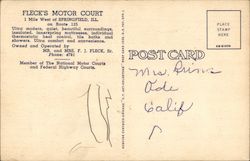 FLECK'S MOTOR COURT
1 Mile West of SPRINGFIELD, ILL.
on Route 125
Ultra modern, quiet, beautiful surroundings,
insulated, innerspring mattresses, individual
thermostatic heat control, tile baths and
showers. Ultra comfort and convenience.
Owned and Operated by
MR. and MRS. F. J. FLECK, Sr.
Phone: 6781
Member of The National Motor Courts
and Federal Highway Courts.
POST CARD
PLACE
STAMP
HERE
Mrs.
Ode
Calif